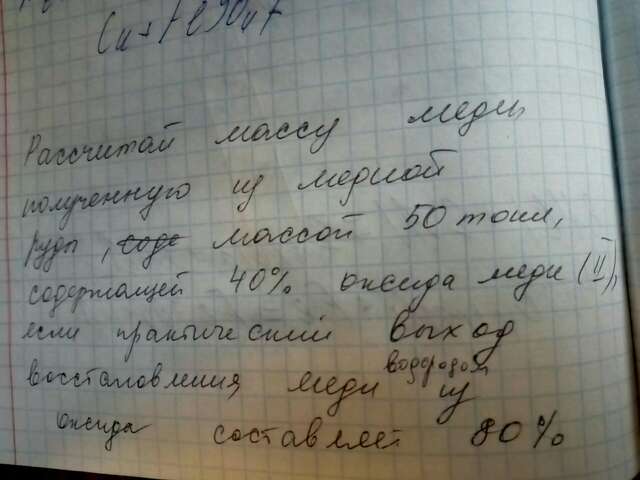 Рассчитай массу меди,
полученную из медной
руды, соде массой 50 тонн,
содержащей 40% оксида меди (II),
если практический выход
восстановления меди водородом из
оксида составляет 80%